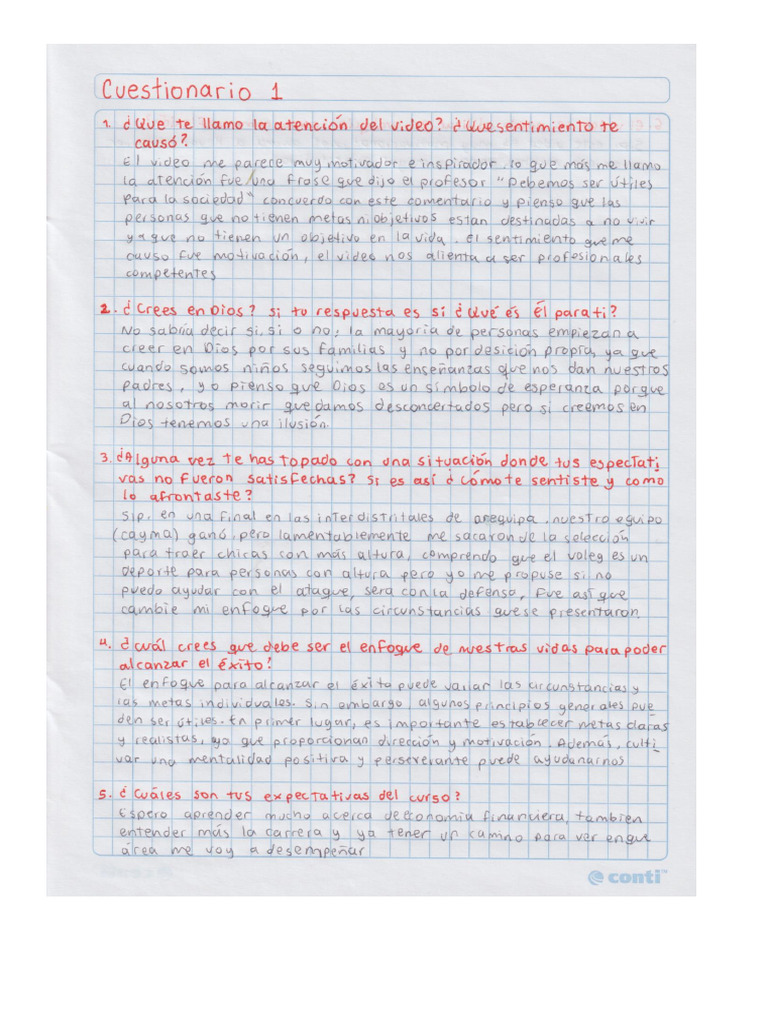 Cuestionario 1
1. ¿Que te llamo la atención del video? ¿Que sentimiento te
causó?
El video me parece muy motivador e inspirador, lo que más me llamo
la atención fue una frase que dijo el profesor "Debemos ser útiles
para la sociedad" concuerdo con este comentario y pienso que las
personas que no tienen metas ni objetivos estan destinadas a no vivir
ya que no tienen un objetivo en la vida. El sentimiento que me
causo fue motivación, el video nos alienta a ser profesionales
competentes
2. ¿Crees en Dios? si tu respuesta es sí ¿Qué és Él para ti?
No sabría decir si, si o no; la mayoría de personas empiezan a
creer en Dios por sus familias y no por desición propia, ya que
cuando somos niños seguimos las enseñanzas que nos dan nuestros
padres, yo pienso que Dios es un símbolo de esperanza porque
al nosotros morir quedamos desconcertados pero si creemos en
Dios tenemos una ilusión.
3. ¿Alguna vez te has topado con una situación donde tus espectati
vas no fueron satisfechas? Si es así ¿Cómo te sentiste y como
lo afrontaste?
Sip, en una final en las interdistritales de arequipa, nuestro equipo
(cayma) ganó, pero lamentablemente me sacaron de la selección
para traer chicas con más altura, comprendo que el voley es un
deporte para personas con altura pero yo me propuse si no
puedo ayudar con el ataque, sera con la defensa, Fue así que
cambie mi enfoque por las circunstancias que se presentaron.
4. ¿cuál crees que debe ser el enfoque de nuestras vidas para poder
alcanzar el éxito?
El enfoque para alcanzar el éxito puede variar las circunstancias y
las metas individuales. Sin embargo, algunos principios generales pue
den ser útiles. En primer lugar, es importante establecer metas claras
y realistas, ya que proporcionan dirección y motivación. Además, culti
var una mentalidad positiva y perseverante puede ayudanarnos
5. ¿Cuáles son tus expectativas del curso?
Espero aprender mucho acerca de economia financiera, tambien
entender más la carrera y ya tener un camino para ver en que
área me voy a desempeñar
conti™